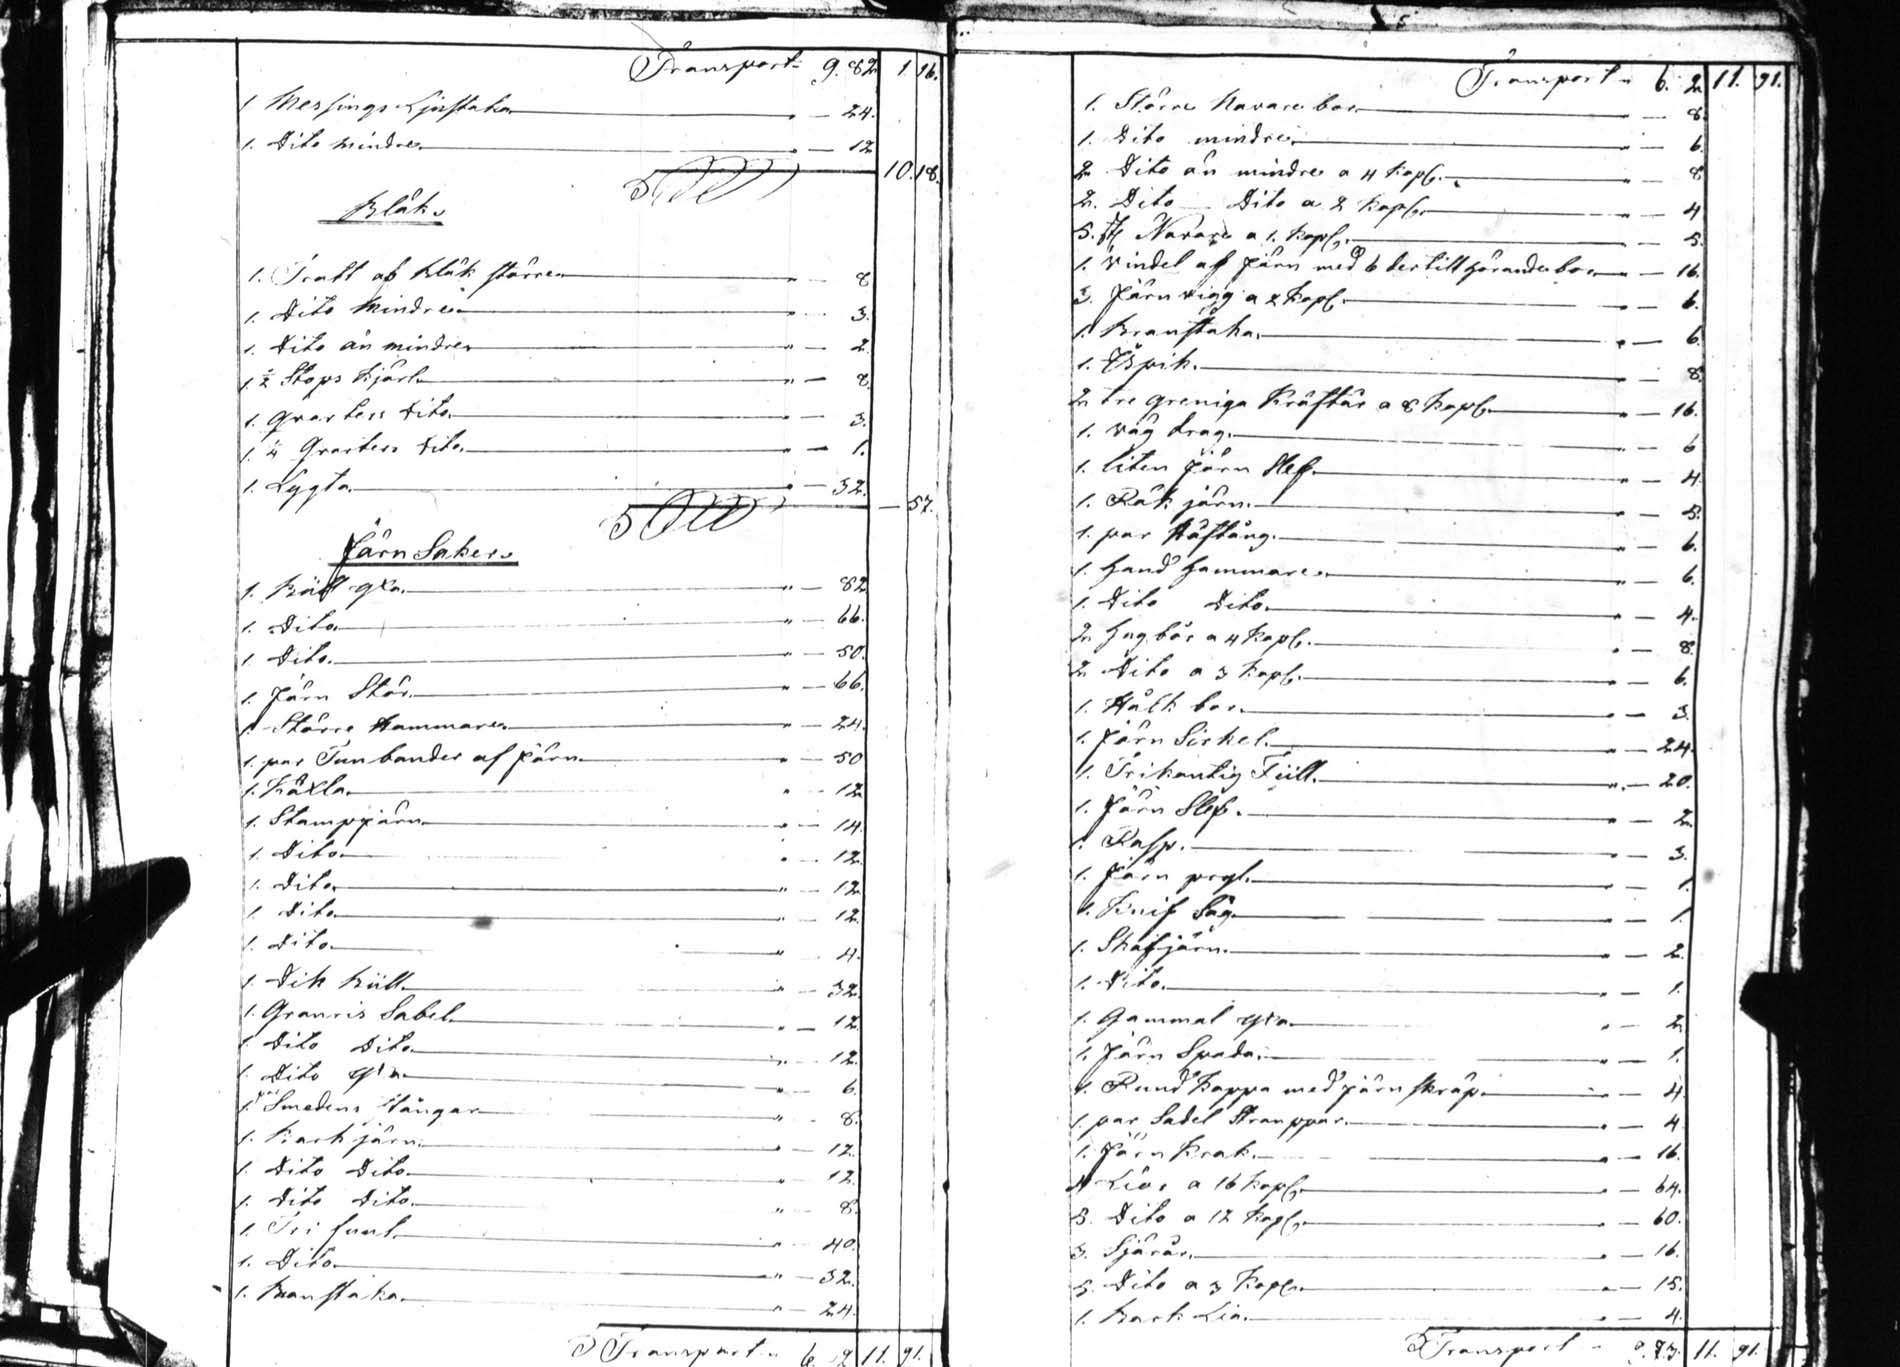 Transport 9. 82 1. 16.
1. Messings Ljusstaka " — 24.
1. Dito mindre " — 12
10. 18.
Bläk
1. Tratt af bläk större " — 8
1. Dito Mindre " — 3.
1. Dito än mindre " — 2
1. ½ Stops kjärl " — 8
1. qvarters dito " — 3.
1. ½ Qvarters dito " — 1.
1. Lygta " — 32.
— 57.
Järn Saker
1. yxa " — 82
1. Dito " — 66.
1. Dito " — 50.
1. Järn Stör " — 66.
1. Större Hammare " — 24.
1. par Tunbander af järn " — 50
1. " — 12
1. Stampjärn " — 14.
1. Dito " — 12.
1. Dito " — 12
1. Dito " — 12.
1. Dito " — 4.
1. Dik " — 32.
1. Granris Sabel " — 12.
1. Dito Dito " — 12.
1. Dito yxa " — 6.
1. par Smedens tänger " — 8.
1. Bark järn " — 12.
1. Dito Dito " — 12.
1. Dito Dito " — 8.
1. Tri " — 40.
1. Dito " — 32.
1. Branstaka " — 24.
Transport " 6. 2 11. 91.
Transport " 6. 2 11. 91.
1. Större Navare bor " — 8.
1. Dito mindre " — 6.
2 Dito än mindre a 4 kop. " — 8
2. Dito Dito a 2 kop. " — 4
5. st Navare a 1. kop. " — 5.
1. Vindel af järn med 6 dertill hörande bor " — 16.
3. Järn vigg a 2 kop. " — 6.
1. Branstaka " — 6.
1. Ispik " — 8.
2 tre greniga a 8 kop. " — 16.
1. våg drag " — 6
1. liten Järn Slef " — 4.
1. Råk järn " — 5.
1. par Håftång " — 6.
1. Hand Hammare " — 6.
1. Dito Dito " — 4.
2 Hugbår a 4 kop. " — 8.
2 Dito a 3 kop. " — 6.
1. Hålk bor " — 3.
1. Järn Sirkel " — 24.
1. Trikantig Fiill " — 20.
1. Järn Slef " — 2
1. Rasp. " — 3.
1. Järn " — 1.
1. Knif Såg " — 1.
1. Skafjärn " — 2.
1. Dito " — 1.
1. Gammal yxa " — 2
1. Järn Spada " — 1.
1. Rund kappa med järn skrap " — 4.
1. par Sadel Stranppar " — 4
1. Järn Krak " — 16.
4 Lior a 16 kop. " — 64.
5. Dito a 12 kop. " — 60.
3. Sjärår " — 16.
5. Dito a 3 kop. " — 15.
1. Bark Lia " — 4.
Transport 11. 91.